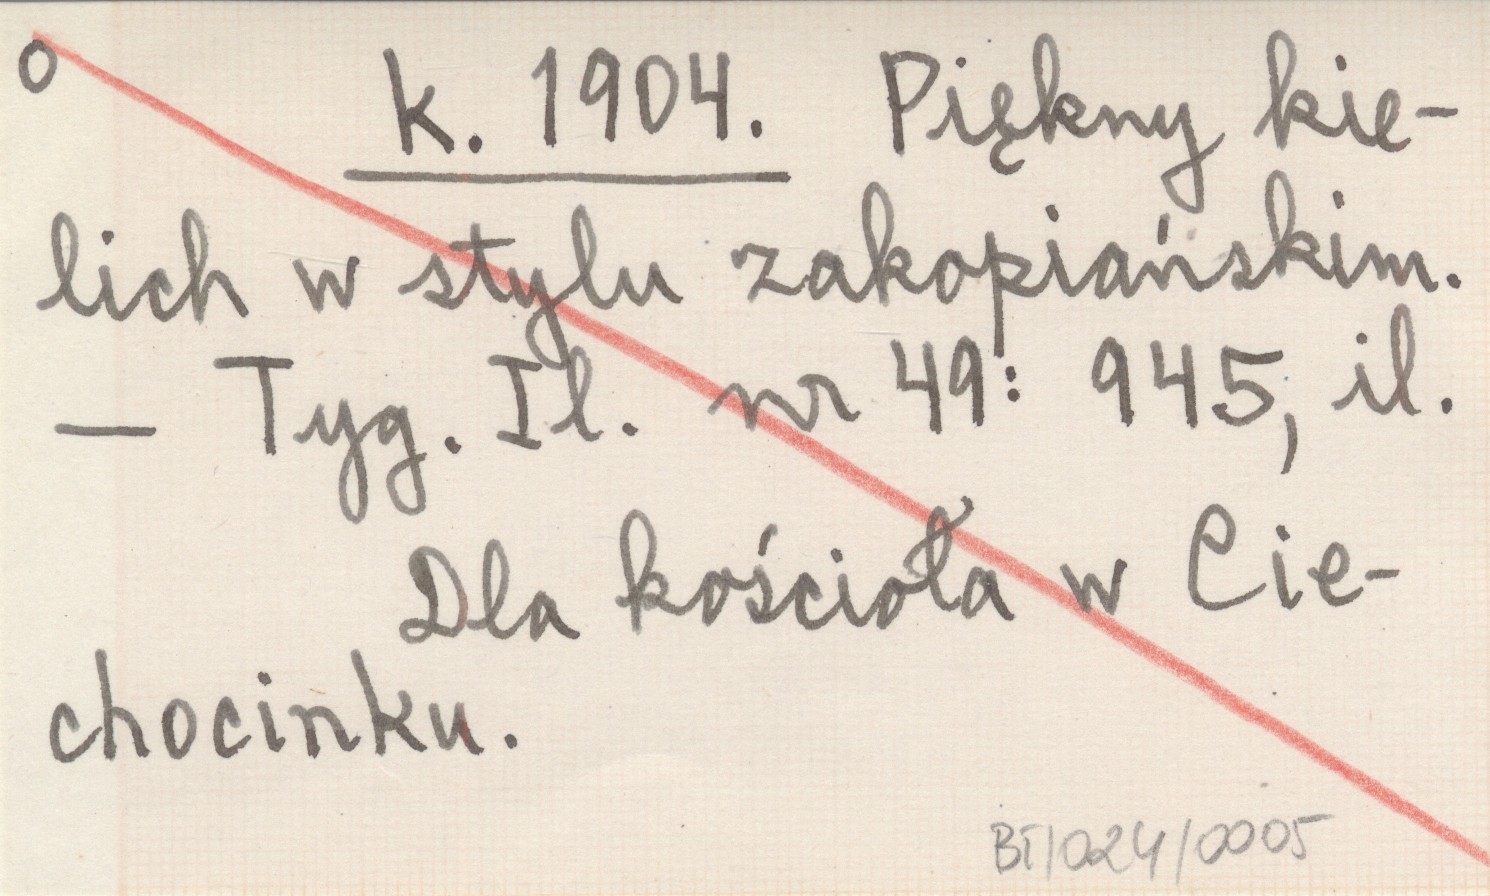 o k. 1904. Piękny kie-
lich w stylu zakopiańskim.
— Tyg. Il. nr 49: 945, il.
Dla kościoła w Cie-
chocinku.
BT/024/0005